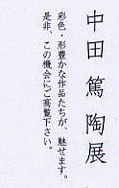 中田 篤 陶展
彩色・形豊かな作品たちが、魅せます。
是非、この機会にご高覧下さい。